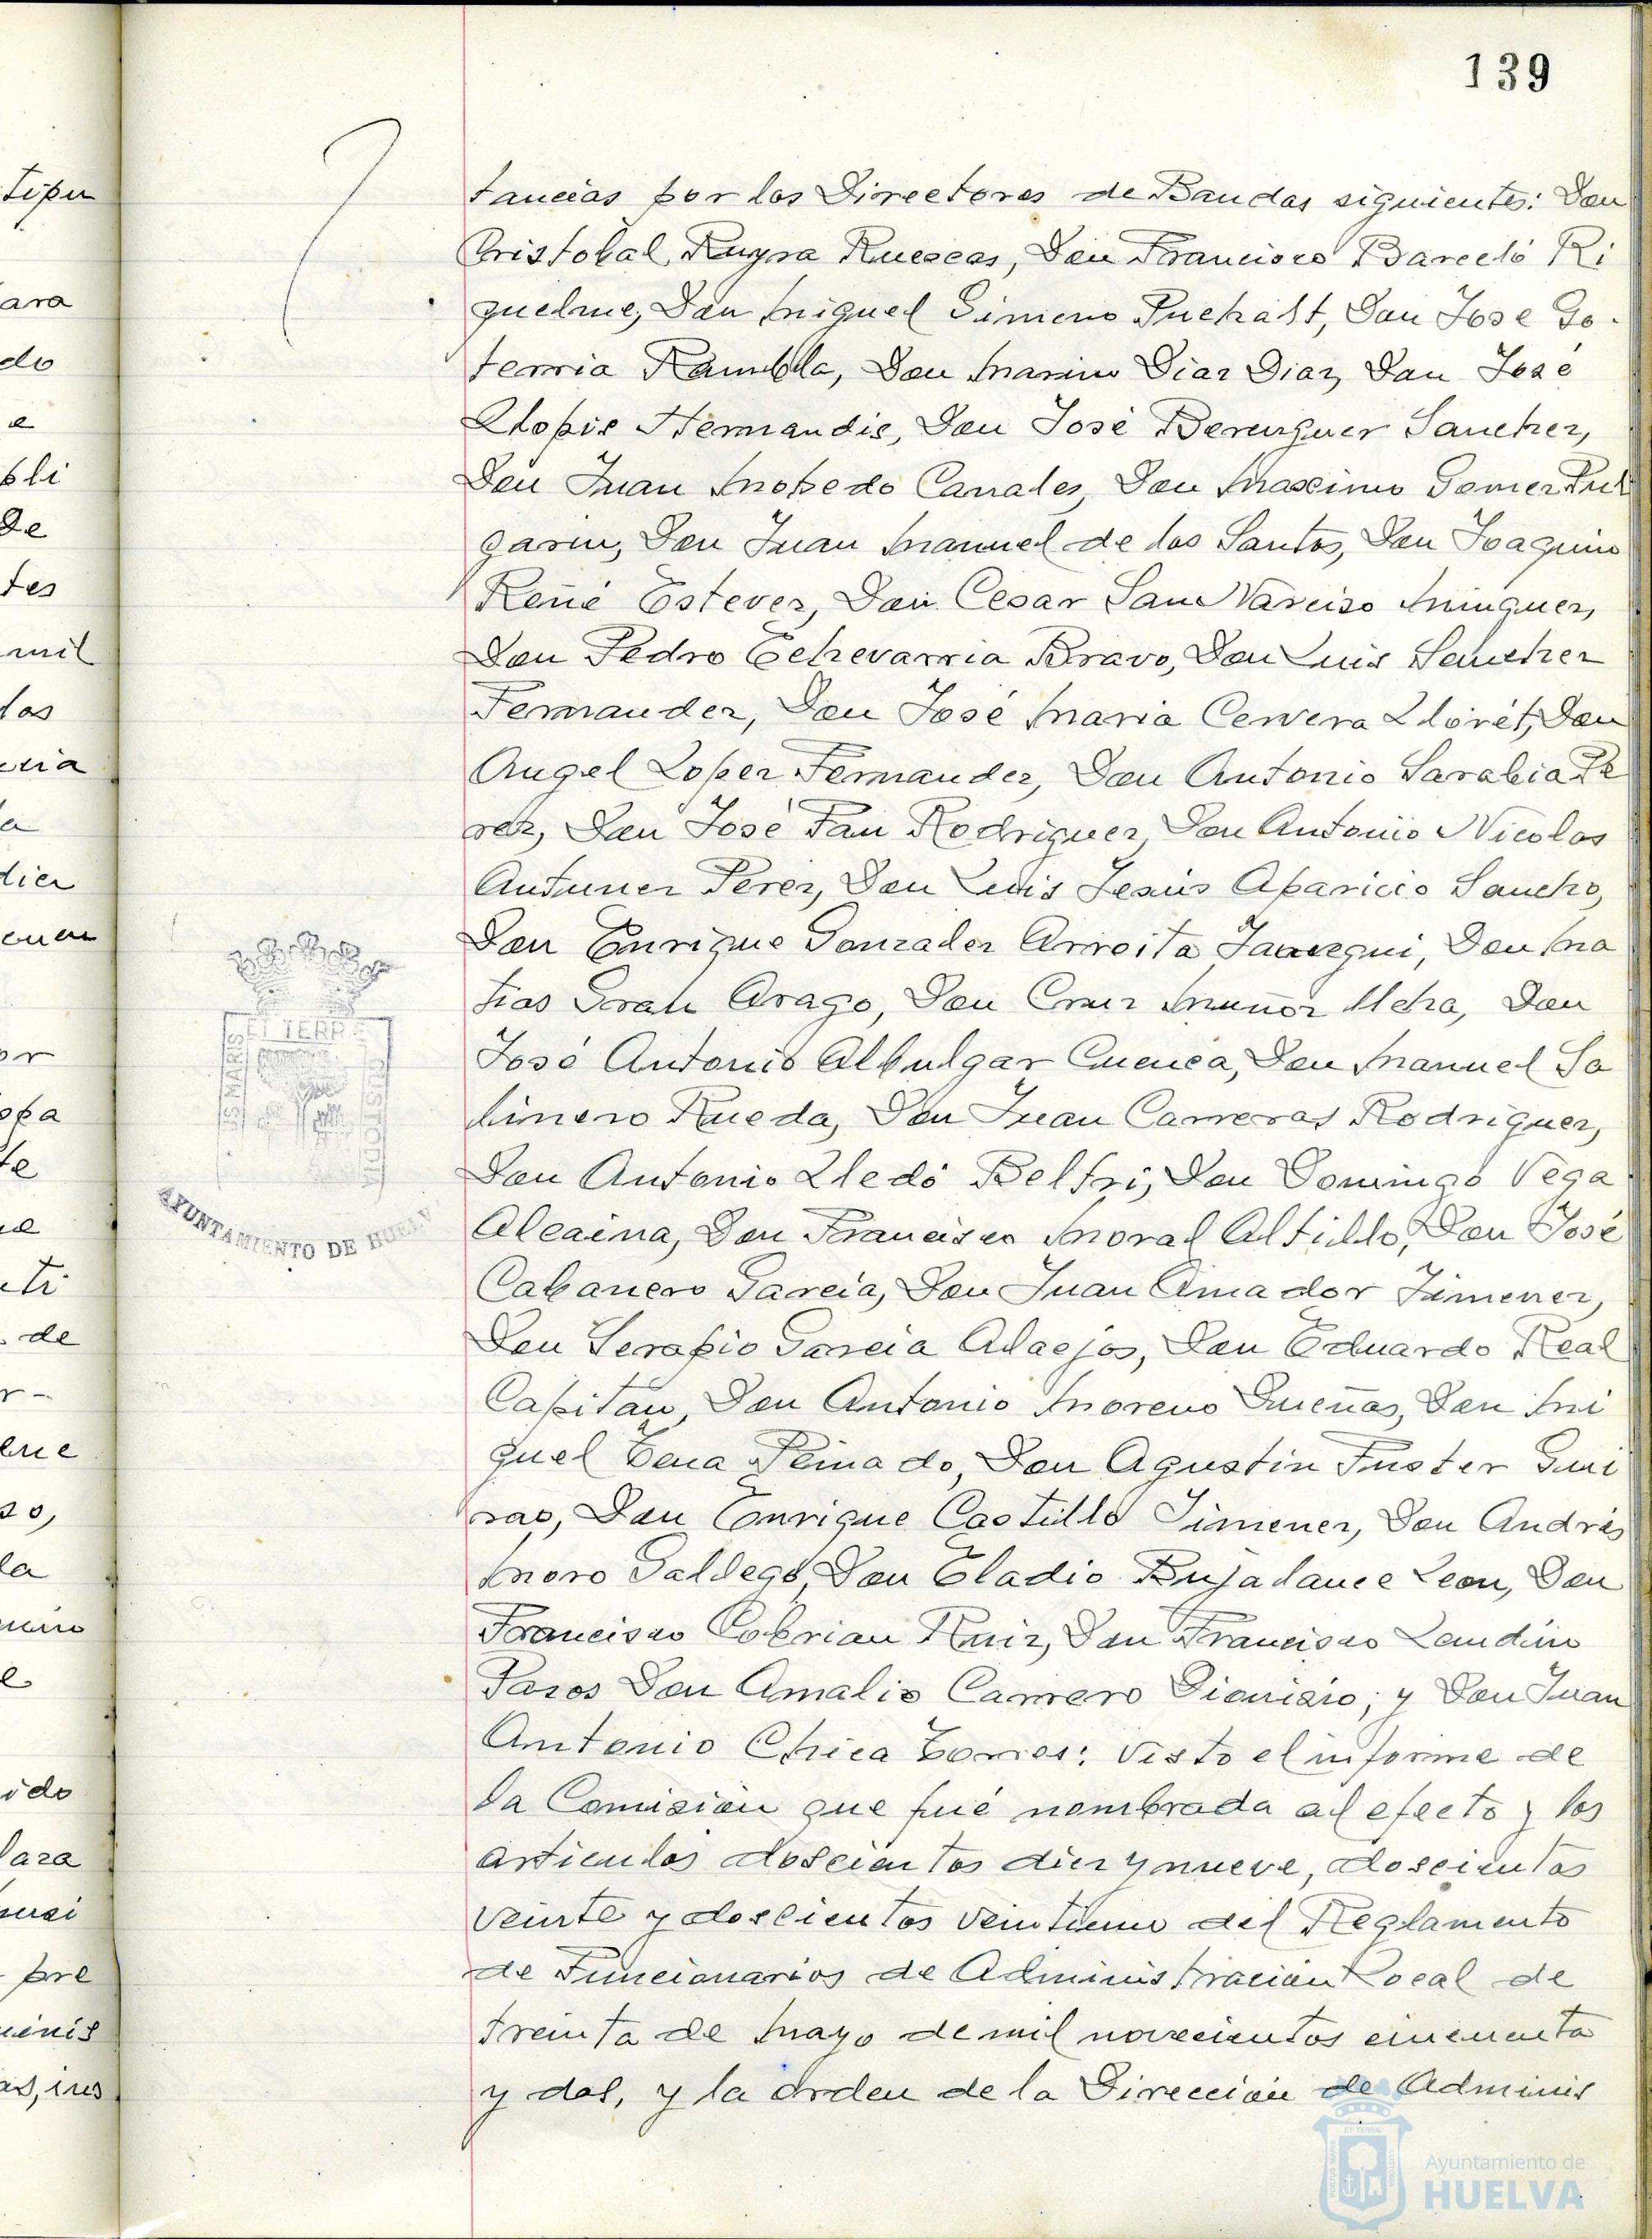 139
tancias por los Directores de Bandas siguientes: Don
Cristobal Ruyra Ruescas, Don Francisco Barceló Ri
quelme, Don Miguel Gimeno Puchalt, Don Jose Go-
terris Rambla, Don Marino Diaz Diaz, Don José
Llopis Hernandis, Don José Berenguer Sanchez,
Don Juan Mopedo Canales, Don Maximo Gomez Pul
garin, Don Juan Manuel de los Santos, Don Joaquin
Reñé Estevez, Don Cesar San Narciso Minguez,
Don Pedro Echevarria Bravo, Don Luis Sanchez
Fernandez, Don José Maria Cervera Lloret, Don
Angel Lopez Fernandez, Don Antonio Sarabia Pe
rez, Don José Fau Rodriguez, Don Antonio Nicolas
Antunez Perez, Don Luis Jesús Aparicio Sancho,
Don Enrique Gonzalez Arroita Jauregui, Don Ma
tias Arago, Don Cruz Muñoz Don
José Antonio Albulgar Cuenca, Don Manuel So
linero Rueda, Don Juan Carreras Rodriguez,
Don Antonio Lledó Beltri, Don Domingo Vega
Alcaina, Don Francisco Moral Altillo, Don José
Cabanero Garcia, Don Juan Amador Jimenez,
Don Serapio Garcia Alaejos, Don Eduardo Real
Capitan, Don Antonio Moreno Dueñas, Don Mi
guel Tena Peinado, Don Agustin Fuster Gui
rao, Don Enrique Castillo Jimenez, Don Andrés
Moro Gallego, Don Eladio Bujalance Leon, Don
Francisco Cobrian Ruiz, Don Francisco Landin
Pazos Don Amalio Carrero Dionisio; y Don Juan
Antonio Chica Torres: Visto el informe de
la Comisión que fué nombrada al efecto y los
articulos doscientos diez y nueve, doscientos
veinte y doscientos veintiuno del Reglamento
de Funcionarios de Administración Local de
treinta de Mayo de mil novecientos cincuenta
y dos, y la orden de la Dirección de Adminis
AYUNTAMIENTO DE HUELV
Ayuntamiento de
HUELVA
tipu
ara
do
e
bli
De
tes
mil
los
cia
a
diez
or
te
ti
de
r-
la
e
ido
pre
inis
as, ins